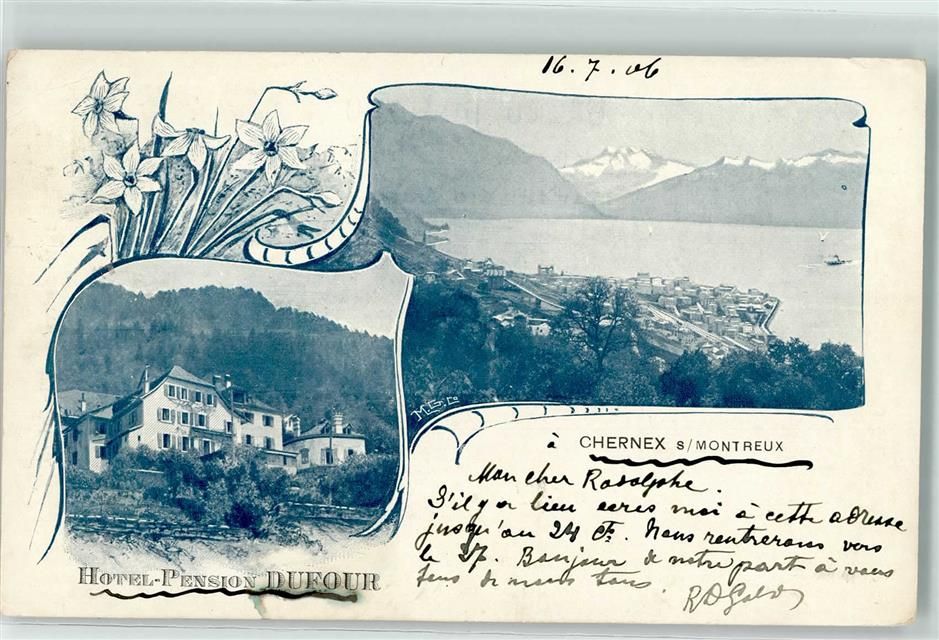 16.7.06
M.S.Co
à CHERNEX S/MONTREUX
Mon cher Rodolphe.
S'il y a lieu ecris moi à cette adresse
jusqu'au 24 Ct. Nous rentrerons vers
le 27. Bonjour de notre part à vous
tous de nous tous.
HOTEL-PENSION DUFOUR